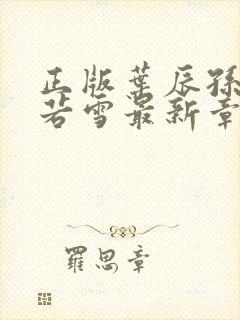 正版葉辰孫
若雪最新章
羅思章